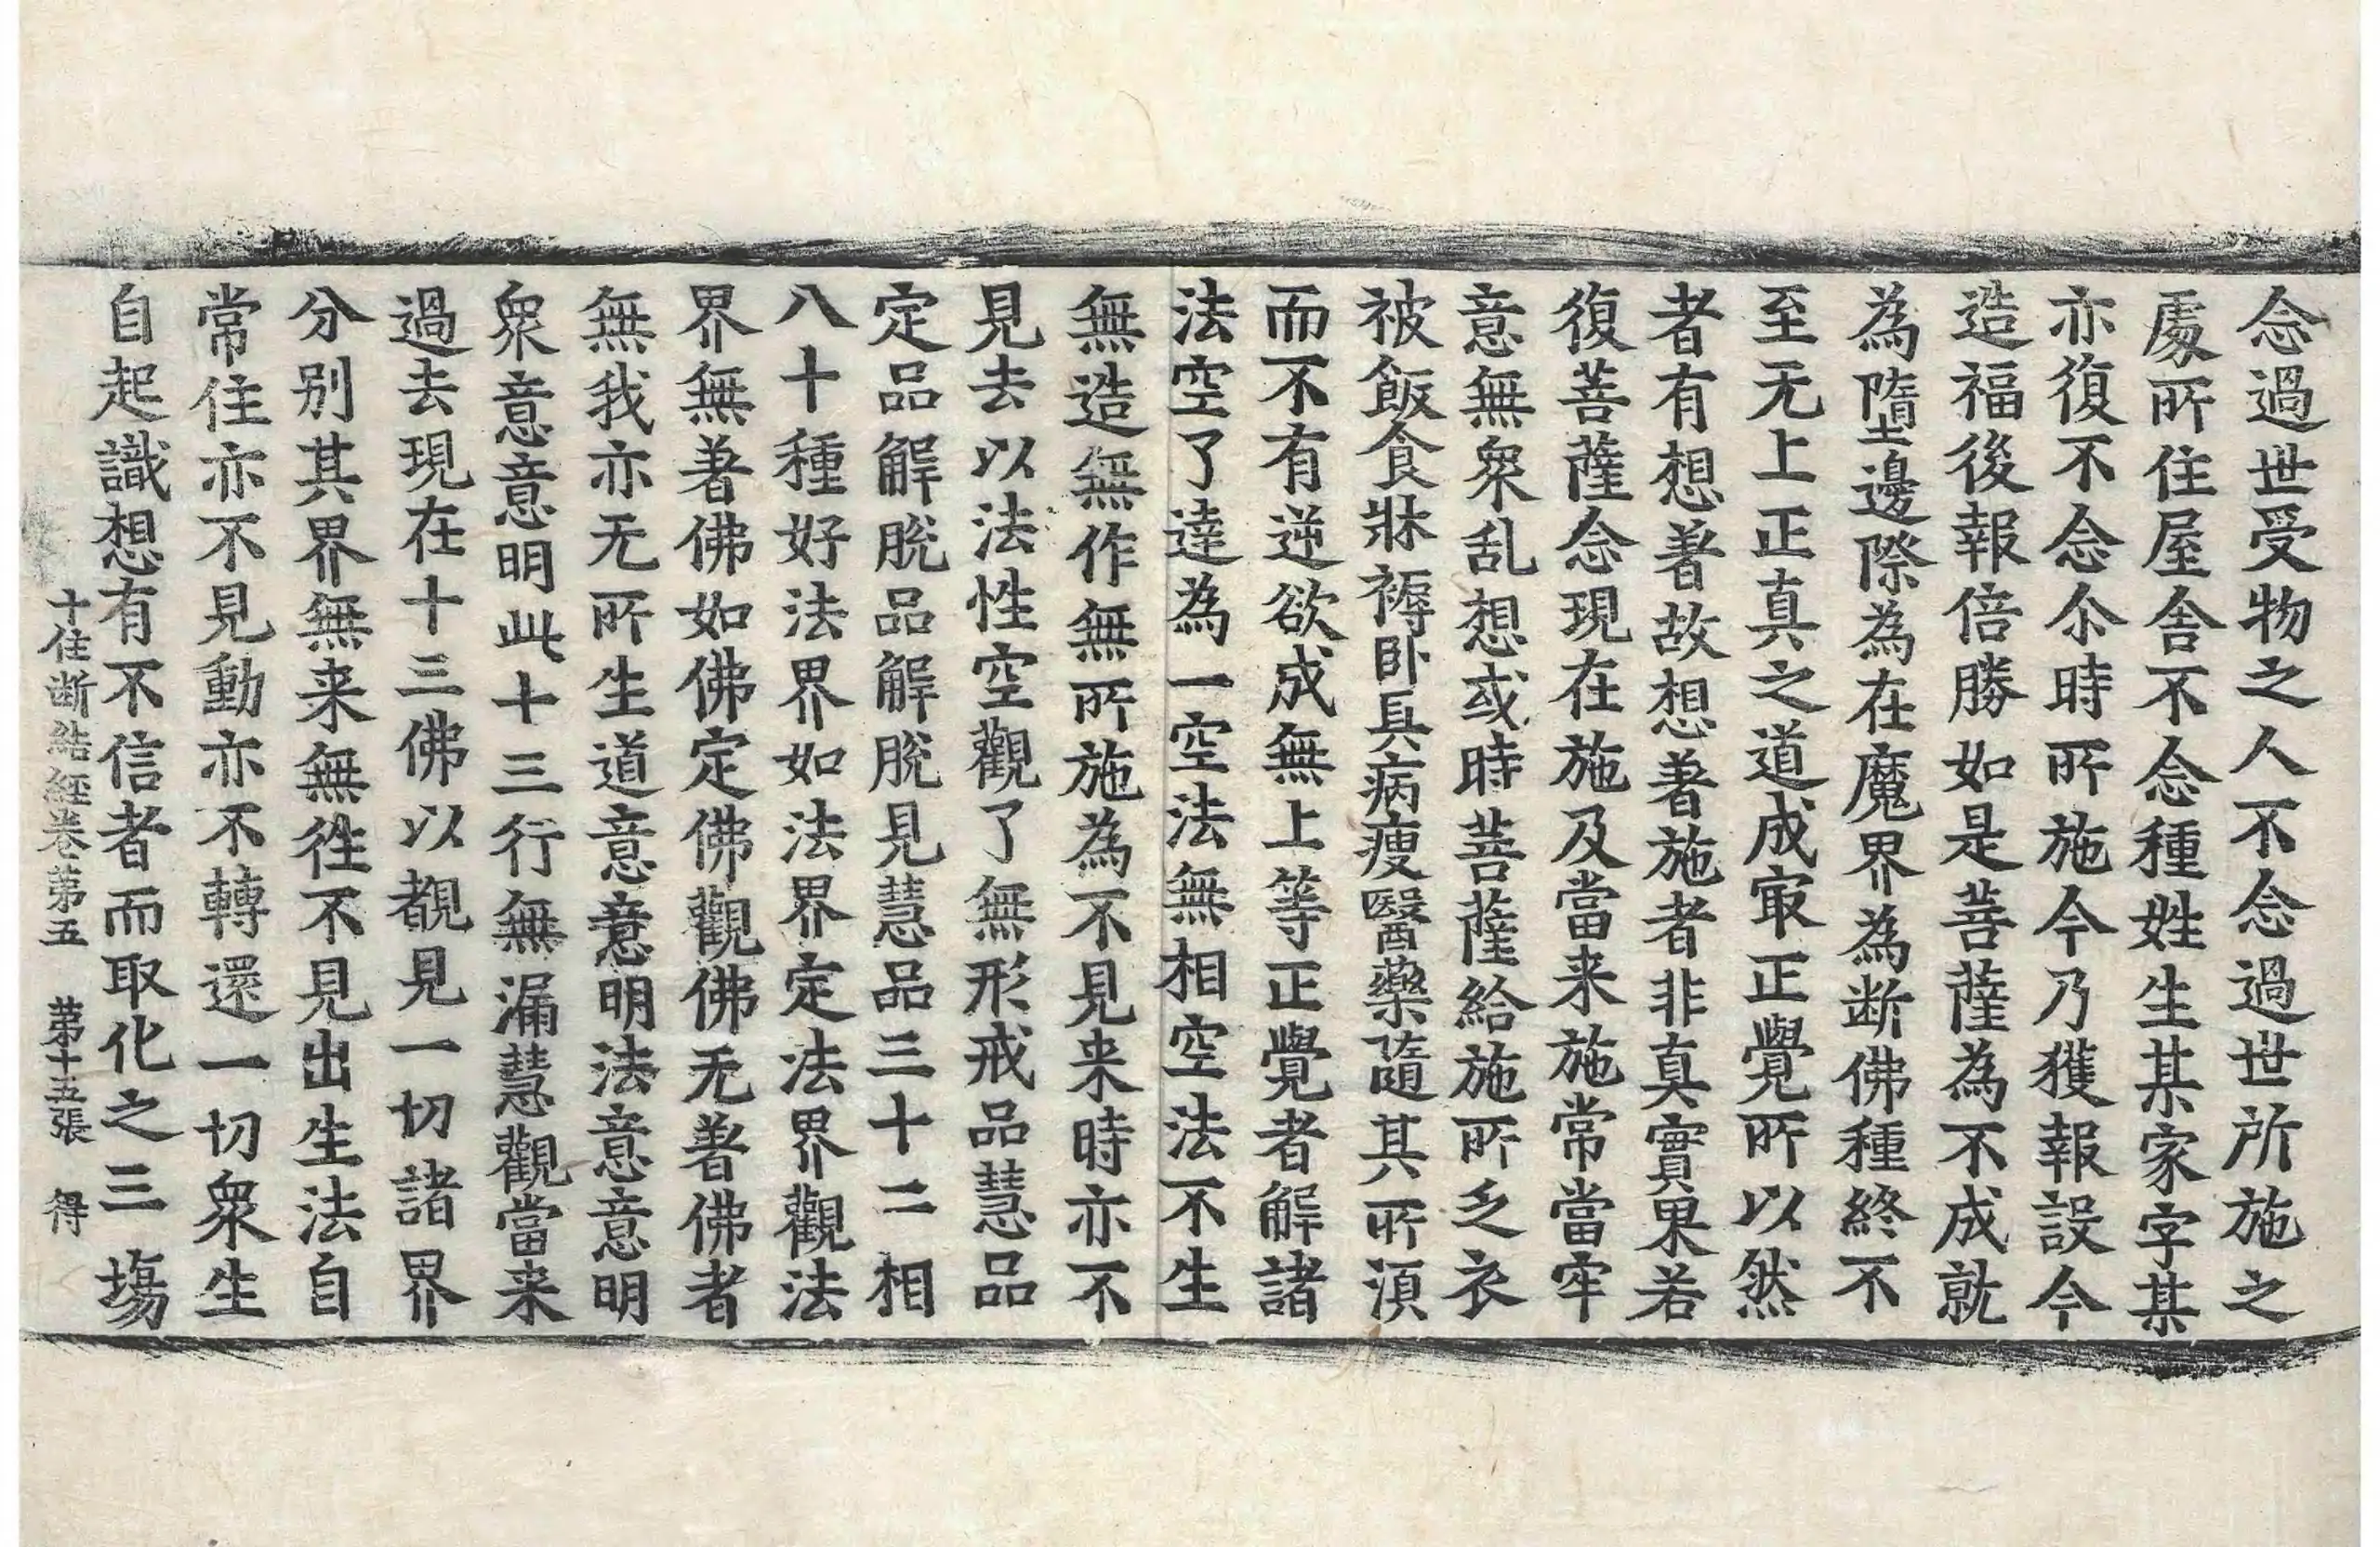 念過世受物之人不念過世所施之
處所住屋舍不念種姓生某家字某
亦復不念尒時所施今乃獲報設今
造福後報倍勝如是菩薩為不成就
為墮邊際為在魔界為断佛種終不
至无上正真之道成㝡正覺所以然
者有想著故想著施者非真實果若
復菩薩念現在施及當来施常當牢
意無衆乱想或時菩薩給施所乏衣
被飯食牀褥卧具病瘦醫藥隨其所湏
而不有逆欲成無上等正覺者解諸
法空了達為一空法無相空法不生
無造無作無所施為不見来時亦不
見去以法性空觀了無形戒品慧品
定品解脫品解脫見慧品三十二相
八十種好法界如法界定法界觀法
界無著佛如佛定佛觀佛无著佛者
無我亦无所生道意意明法意意明
衆意意明此十三行無漏慧觀當来
過去現在十三佛以覩見一切諸界
分別其界無来無徃不見出生法自
常住亦不見動亦不轉還一切衆生
自起識想有不信者而取化之三塲
十住断結經卷第五 第十五張 得